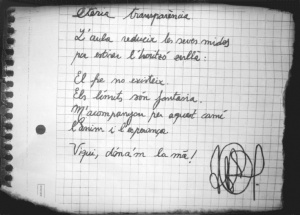 Etèria transparència
L'aula redueix les seves mides
per estirar l'horitzó enllà:
El fix no existeix
Els límits són fantasia.
M'acompanyeu per aquest camí
l'ànim i l'esperança
Vigui, dóna'm la mà!